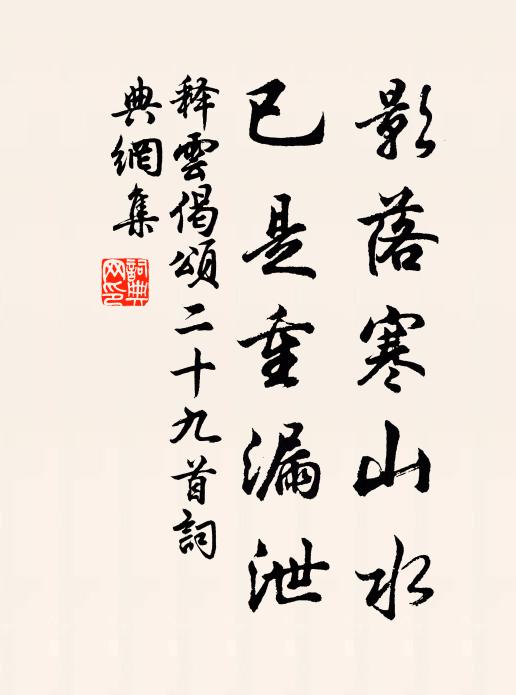 影落寒山水
已是重漏泄
释雲偈頌二十九首詞
典網集
詞典
网印